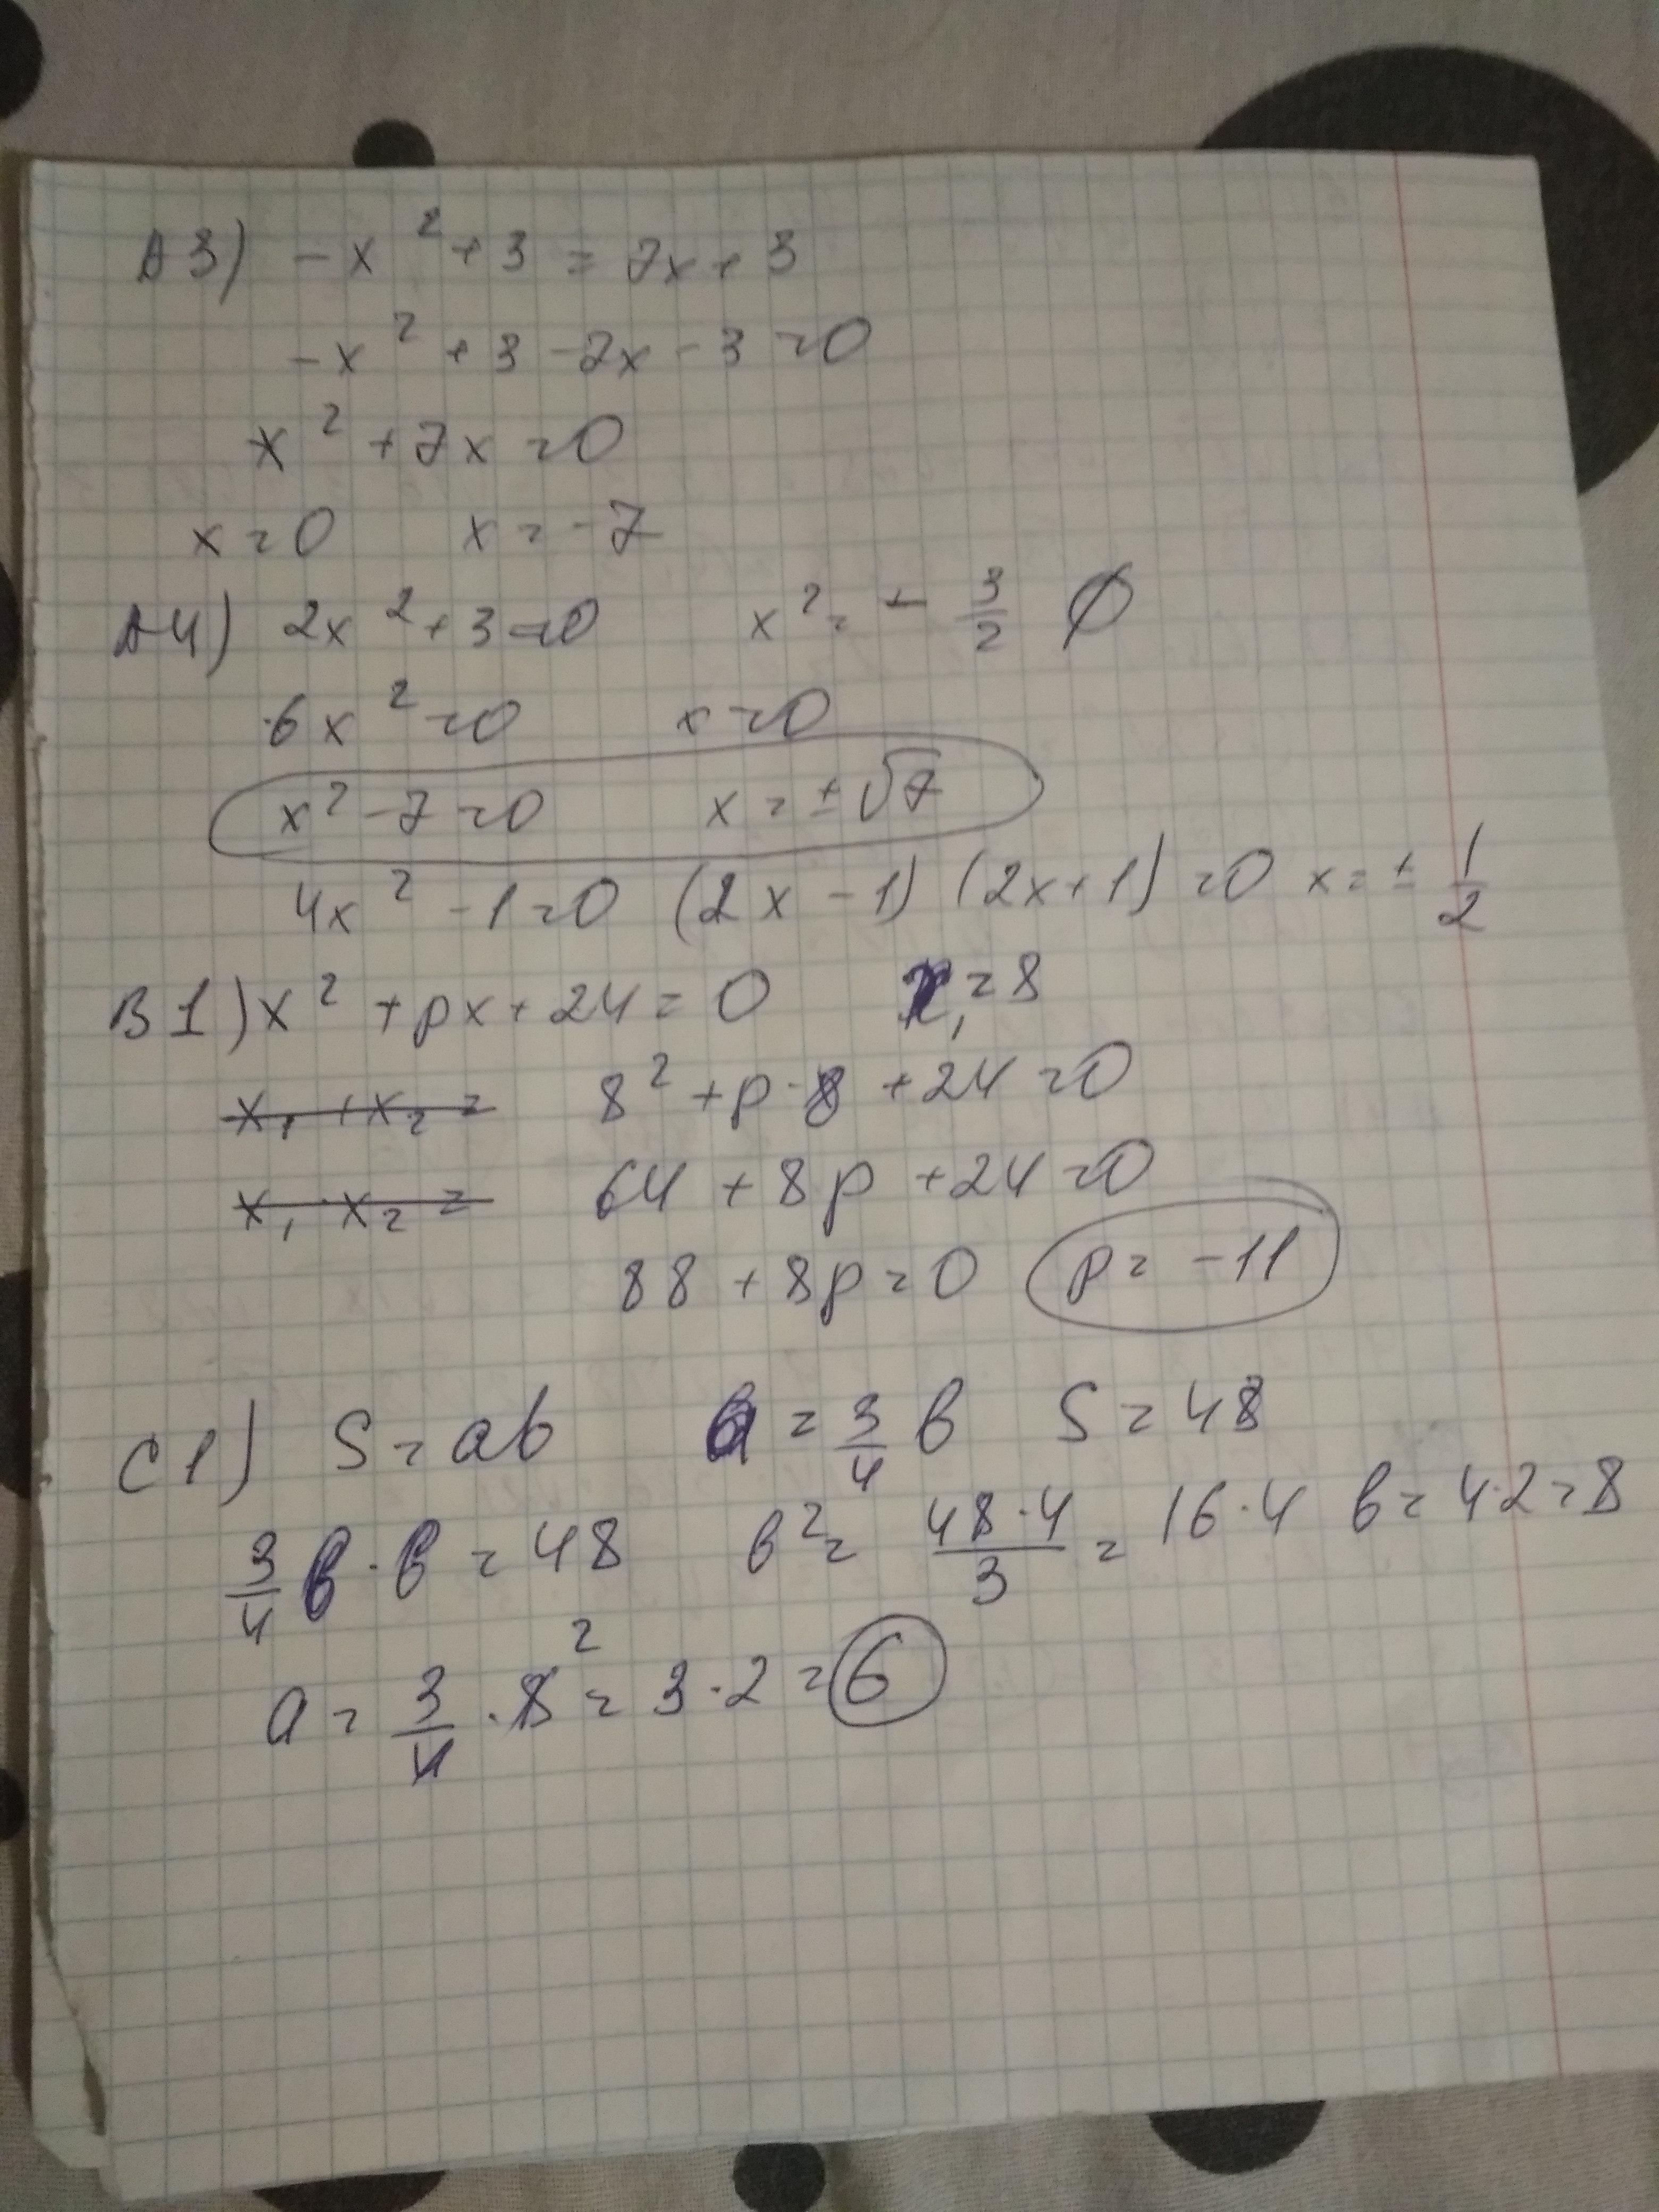 A3) -x² + 3 = 7x + 3
-x² + 3 - 7x - 3 = 0
x² + 7x = 0
x = 0 x = -7
A4) 2x² + 3 = 0 x² = - 3/2 ∅
6x² = 0 x = 0
x² - 7 = 0 x = ±√7
4x² - 1 = 0 (2x - 1) (2x + 1) = 0 x = ± 1/2
B1) x² + px + 24 = 0 x₁ = 8
x₁ + x₂ = 8² + p · 8 + 24 = 0
x₁ · x₂ = 64 + 8p + 24 = 0
88 + 8p = 0 p = -11
C1) S = ab a = 3/4 b S = 48
3/4 b · b = 48 b² = 48 · 4/3 = 16 · 4 b = 4 · 2 = 8
2
a = 3/4 · 8 = 3 · 2 = 6